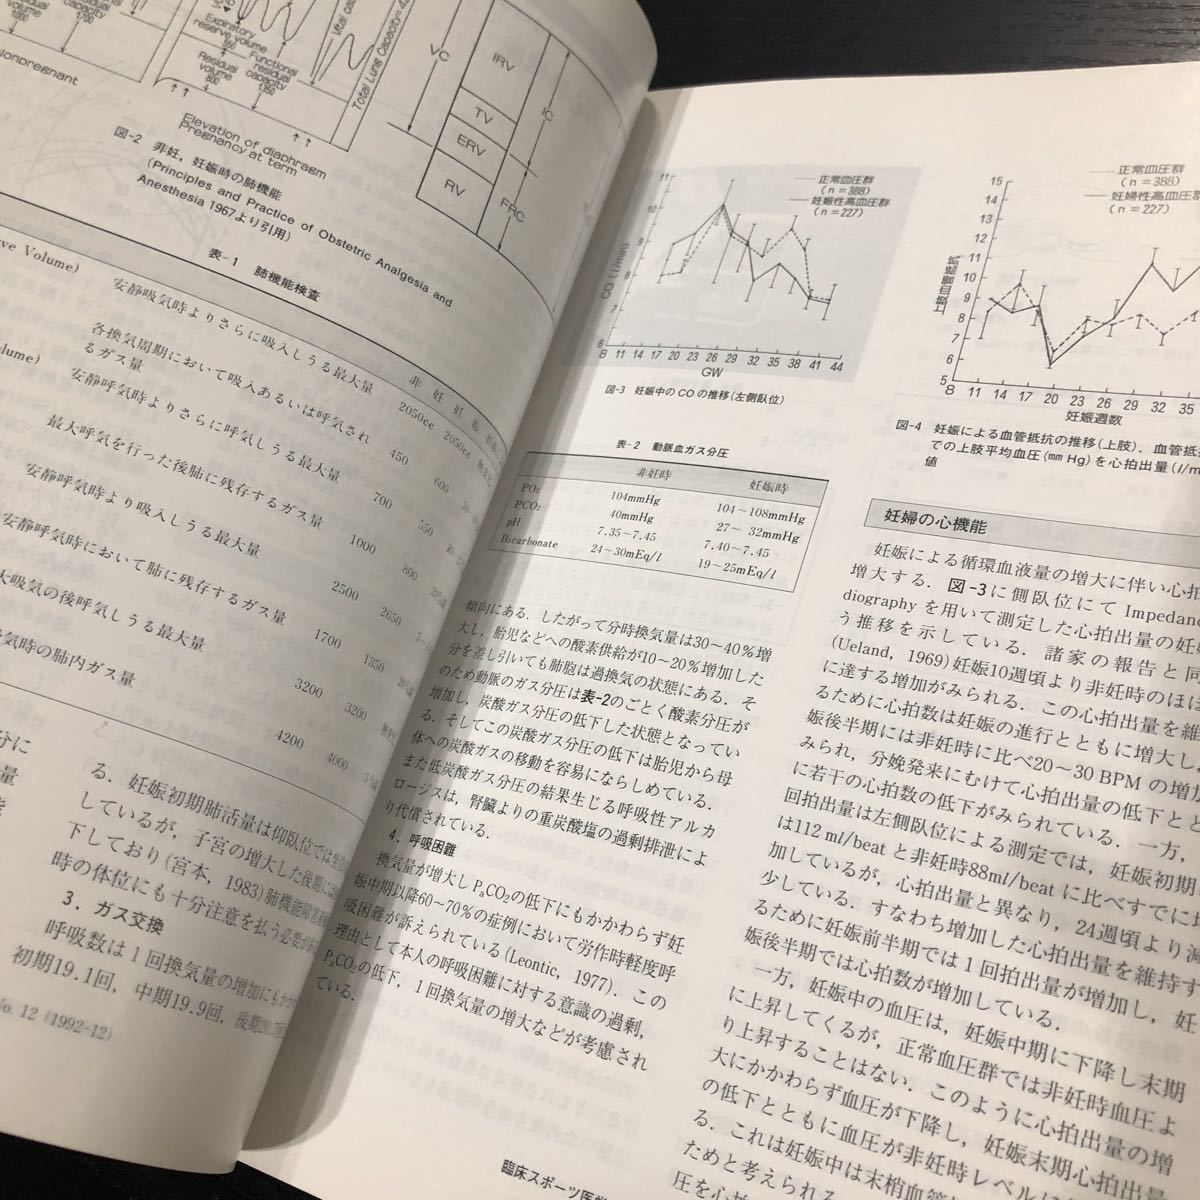 Residual
volume
1000
capacity
1700
Nonpregnant
Expiratory
reserve volume
550
Residual
volume
800
Functional
residual
capacity
1350
Total Lung Capacity=
VC
IRV
TV
ERV
RV
IC
FRC
Elevation of diaphragm
Pregnancy at term
図-2 非妊，妊娠時の肺機能
(Principles and Practice of Obstetric Analgesia and
Anesthesia 1967より引用)
表-1 肺機能検査
非妊
安静吸気時よりさらに吸入しうる最大量 2050cc 2050cc
各換気周期において吸入あるいは呼気され
るガス量 450 600
安静呼気時よりさらに呼気しうる最大量 700 550
最大呼気を行った後肺に残存するガス量 1000 800
安静呼気時より吸入しうる最大量 2500 2650
安静呼気時において肺に残存するガス量 1700 1350
大吸気の後呼気しうる最大量 3200 3200
気時の肺内ガス量 4200 4000
る．妊娠初期肺活量は仰臥位では
しているが，子宮の増大した後期には
下しており(宮本，1983)肺機能障害
時の体位にも十分注意を払う必要が
3．ガス交換
呼吸数は1回換気量の増加にもかか
初期19.1回，中期19.9回，後期20.
No. 12 (1992-12)
正常血圧群
(n=388)
妊娠性高血圧群
(n=227)
CO (l/min)
11
10
9
8
7
6
8 11 14 17 20 23 26 29 32 35 38 41 44
GW
図-3 妊娠中のCOの推移(左側臥位)
表-2 動脈血ガス分圧
非妊時 妊娠時
PO₂ 104mmHg 104～108mmHg
PCO₂ 40mmHg 27～32mmHg
pH 7.35～7.45 7.40～7.45
Bicarbonate 24～30mEq/l 19～25mEq/l
傾向にある．したがって分時換気量は30～40％増
大し，胎児などへの酸素供給が10～20％増加した
分を差し引いても肺胞は過換気の状態にある．そ
のため動脈のガス分圧は表-2のごとく酸素分圧が
増加し，炭酸ガス分圧の低下した状態となってい
る．そしてこの炭酸ガス分圧の低下は胎児から母
体への炭酸ガスの移動を容易にならしめている．
また低炭酸ガス分圧の結果生じる呼吸性アルカ
ロージスは，腎臓よりの重炭酸塩の過剰排泄によ
り代償されている．
4．呼吸困難
換気量が増大しPaCO₂の低下にもかかわらず妊
娠中期以降60～70％の症例において労作時軽度呼
吸困難が訴えられている(Leontic, 1977)．この
理由として本人の呼吸困難に対する意識の過剰，
PaCO₂の低下，1回換気量の増大などが考慮され
ている．
正常血圧群
(n=388)
妊婦性高血圧群
(n=227)
上肢血管抵抗
15
14
13
12
11
10
9
8
7
6
5
8 11 14 17 20 23 26 29 32 35
妊娠週数
図-4 妊娠による血管抵抗の推移(上肢)．血管抵
での上肢平均血圧(mm Hg)を心拍出量(l/m
値
妊婦の心機能
妊娠による循環血液量の増大に伴い心拍
増大する．図-3に側臥位にてImpedanc
diographyを用いて測定した心拍出量の妊
う推移を示している．諸家の報告と同
(Ueland, 1969)妊娠10週頃より非妊時のほぼ
に達する増加がみられる．この心拍出量を維
るために心拍数は妊娠の進行とともに増大し，
娠後半期には非妊時に比べ20～30 BPMの増加
みられ，分娩発来にむけて心拍出量の低下とと
に若干の心拍数の低下がみられている．一方，
回拍出量は左側臥位による測定では，妊娠初期
は112 ml/beatと非妊時88ml/beatに比べすでに
加しているが，心拍出量と異なり，24週頃より減
少している．すなわち増加した心拍出量を維持す
るために妊娠前半期では1回拍出量が増加し，妊
娠後半期では心拍数が増加している．
一方，妊娠中の血圧は，妊娠中期に下降し末期
に上昇してくるが，正常血圧群では非妊時血圧よ
り上昇することはない．このように心拍出量の増
大にかかわらず血圧が下降し，妊娠末期心拍出量
の低下とともに血圧が非妊時レベルに
る．これは妊娠中は末梢血管
ためと考えられる
圧を心拍
臨床スポーツ医学